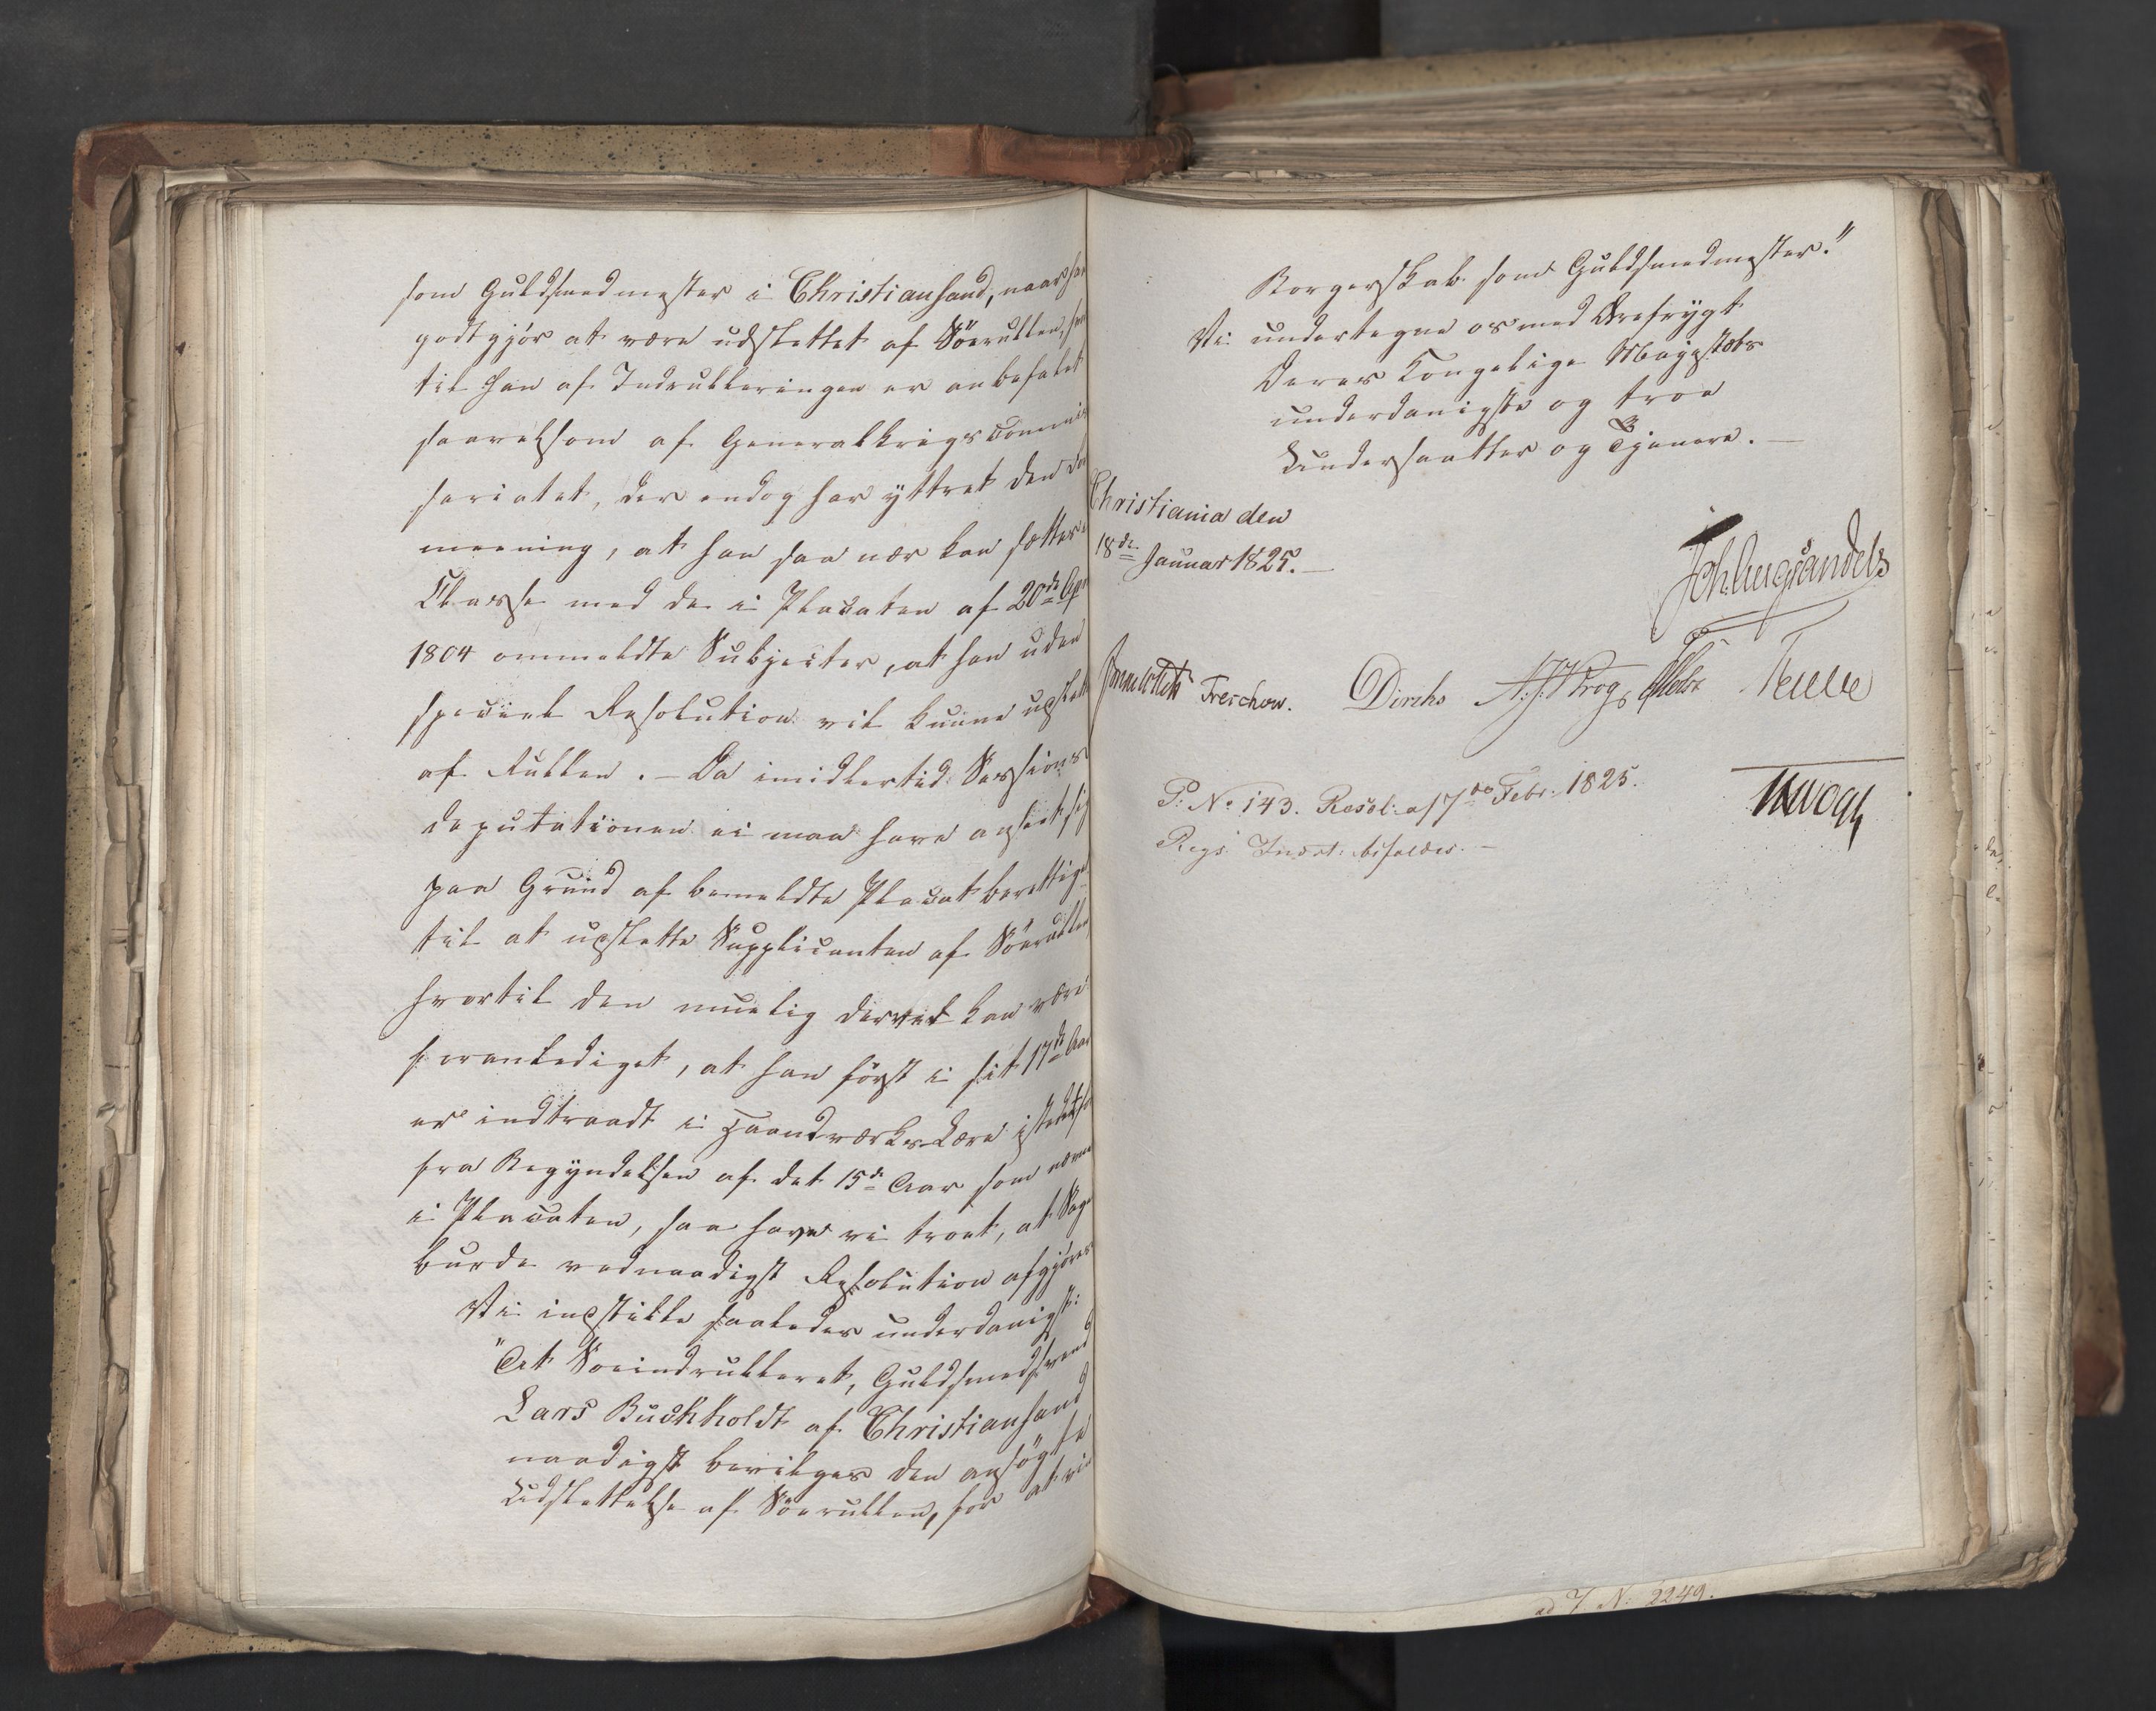 som Guldsmedmester i Christiansand, naar han
godtgjør at være udslettet af Söerullen, hvor
til han af Indrulleringen er anbefalet
saavelsom af Generalkrigscommis
sariatet, der endog har yttret den For
meening, at han saa nær kan sættes i
Classe med de i Placaten af 20de Apr
1804 ommeldte Subjecter, at han uden
speciel Resolution vil kunne udslettes
af Rullen. – Da imidlertid Sessions
deputationen ei maa have anseet sig
paa Grund af bemeldte Placat berettiget
til at udslette Supplicanten af Söerullen,
hvortil den muelig derved kan være
foranlediget, at han först i sit 17de Aar
er indtraadt i Haandværks Lære istedetfor
fra Begyndelsen af det 15de Aar som nævnt
i Placaten, saa have vi troet, at Sagen
burde ved naadigst Resolution afgjöres.
Vi indstille saaledes underdanigst:
"At Söeindrulleret, Guldsmedsvend
Lars Buchholdt af Christiansand
naadigst bevilges den ansögte
Udslettelse af Söerullen, for at vinde
Borgerskab som Guldsmedmester."
Vi undertegne os med Ærefrygt
Deres Kongelige Majestæts
underdanigste og troe
Undersaatter og Tjenere. –
Christiania den
18de Januar 1825. –
Joh. Aug. Sandels
Sommerhielm Treschow. Diriks A. J. Krog Collett Fasting
P: No 143. Resol: af 7de Febr: 1825.
Regs Indst: bifaldes. –
J.H. Vogt
ad J. N: 2249.